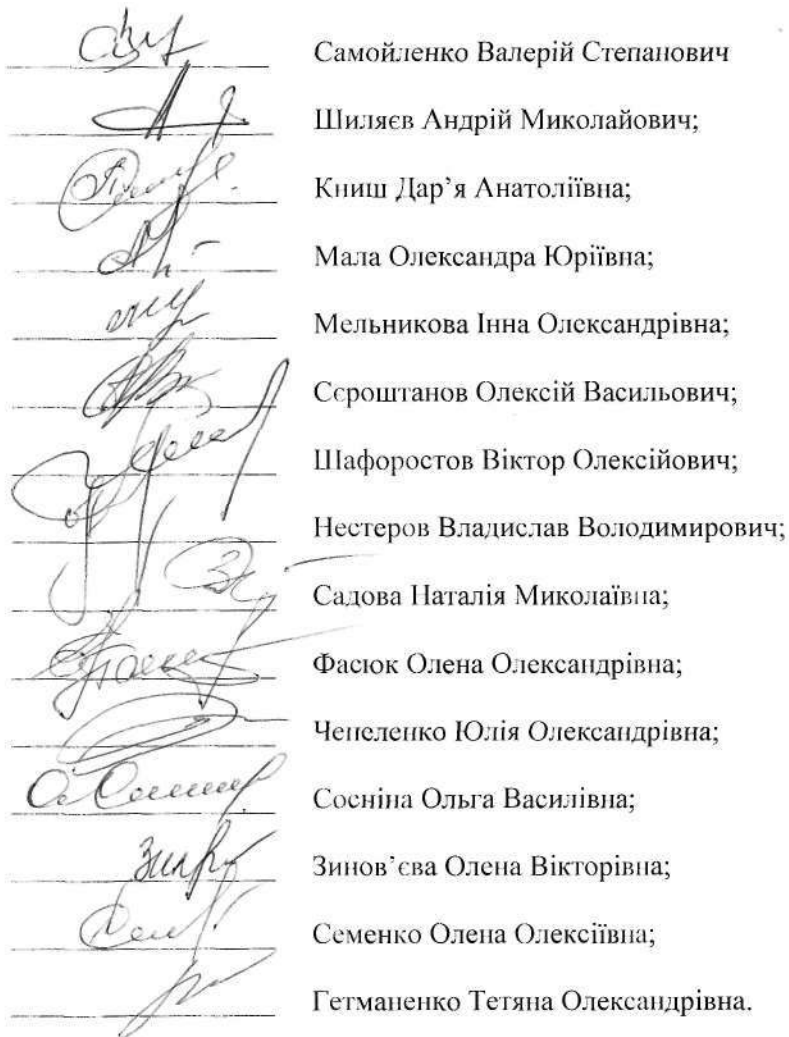 Самойленко Валерій Степанович
Шиляєв Андрій Миколайович;
Книш Дар’я Анатоліївна;
Мала Олександра Юріївна;
Мельникова Інна Олександрівна;
Сєроштанов Олексій Васильович;
Шафоростов Віктор Олексійович;
Нестеров Владислав Володимирович;
Садова Наталія Миколаївна;
Фасюк Олена Олександрівна;
Чепеленко Юлія Олександрівна;
Сосніна Ольга Василівна;
Зинов’єва Олена Вікторівна;
Семенко Олена Олексіївна;
Гетманенко Тетяна Олександрівна.